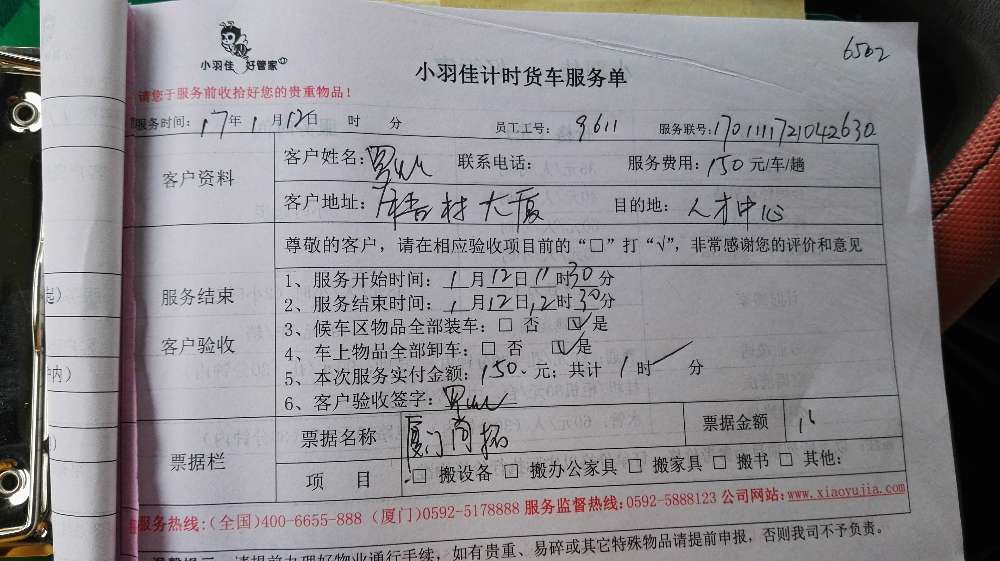 小羽佳 好管家
小羽佳计时货车服务单
6502
请您于服务前收拾好您的贵重物品！
服务时间：17年1月12日 时 分 员工工号：9611 服务联号：170111721042630
客户资料
客户姓名：罗 联系电话： 服务费用：150元/车/趟
客户地址： 村大厦 目的地：人才中心
服务结束
客户验收
尊敬的客户，请在相应验收项目前的“□”打“√”，非常感谢您的评价和意见
1、服务开始时间：1月12日11时30分
2、服务结束时间：1月12日12时30分
3、候车区物品全部装车：□ 否 ☑是
4、车上物品全部卸车：□ 否 ☑是
5、本次服务实付金额：150.元；共计1时 分
6、客户验收签字：罗
票据栏
票据名称 厦门尚拓 票据金额
项 目 □ 搬设备 □ 搬办公家具 □ 搬家具 □ 搬书 □ 其他：
服务热线：（全国）400-6655-888（厦门）0592-5178888 服务监督热线：0592-5888123 公司网站：www.xiaoyujia.com
请提前办理好物业通行手续，如有贵重、易碎或其它特殊物品请提前申报，否则我司不予负责。